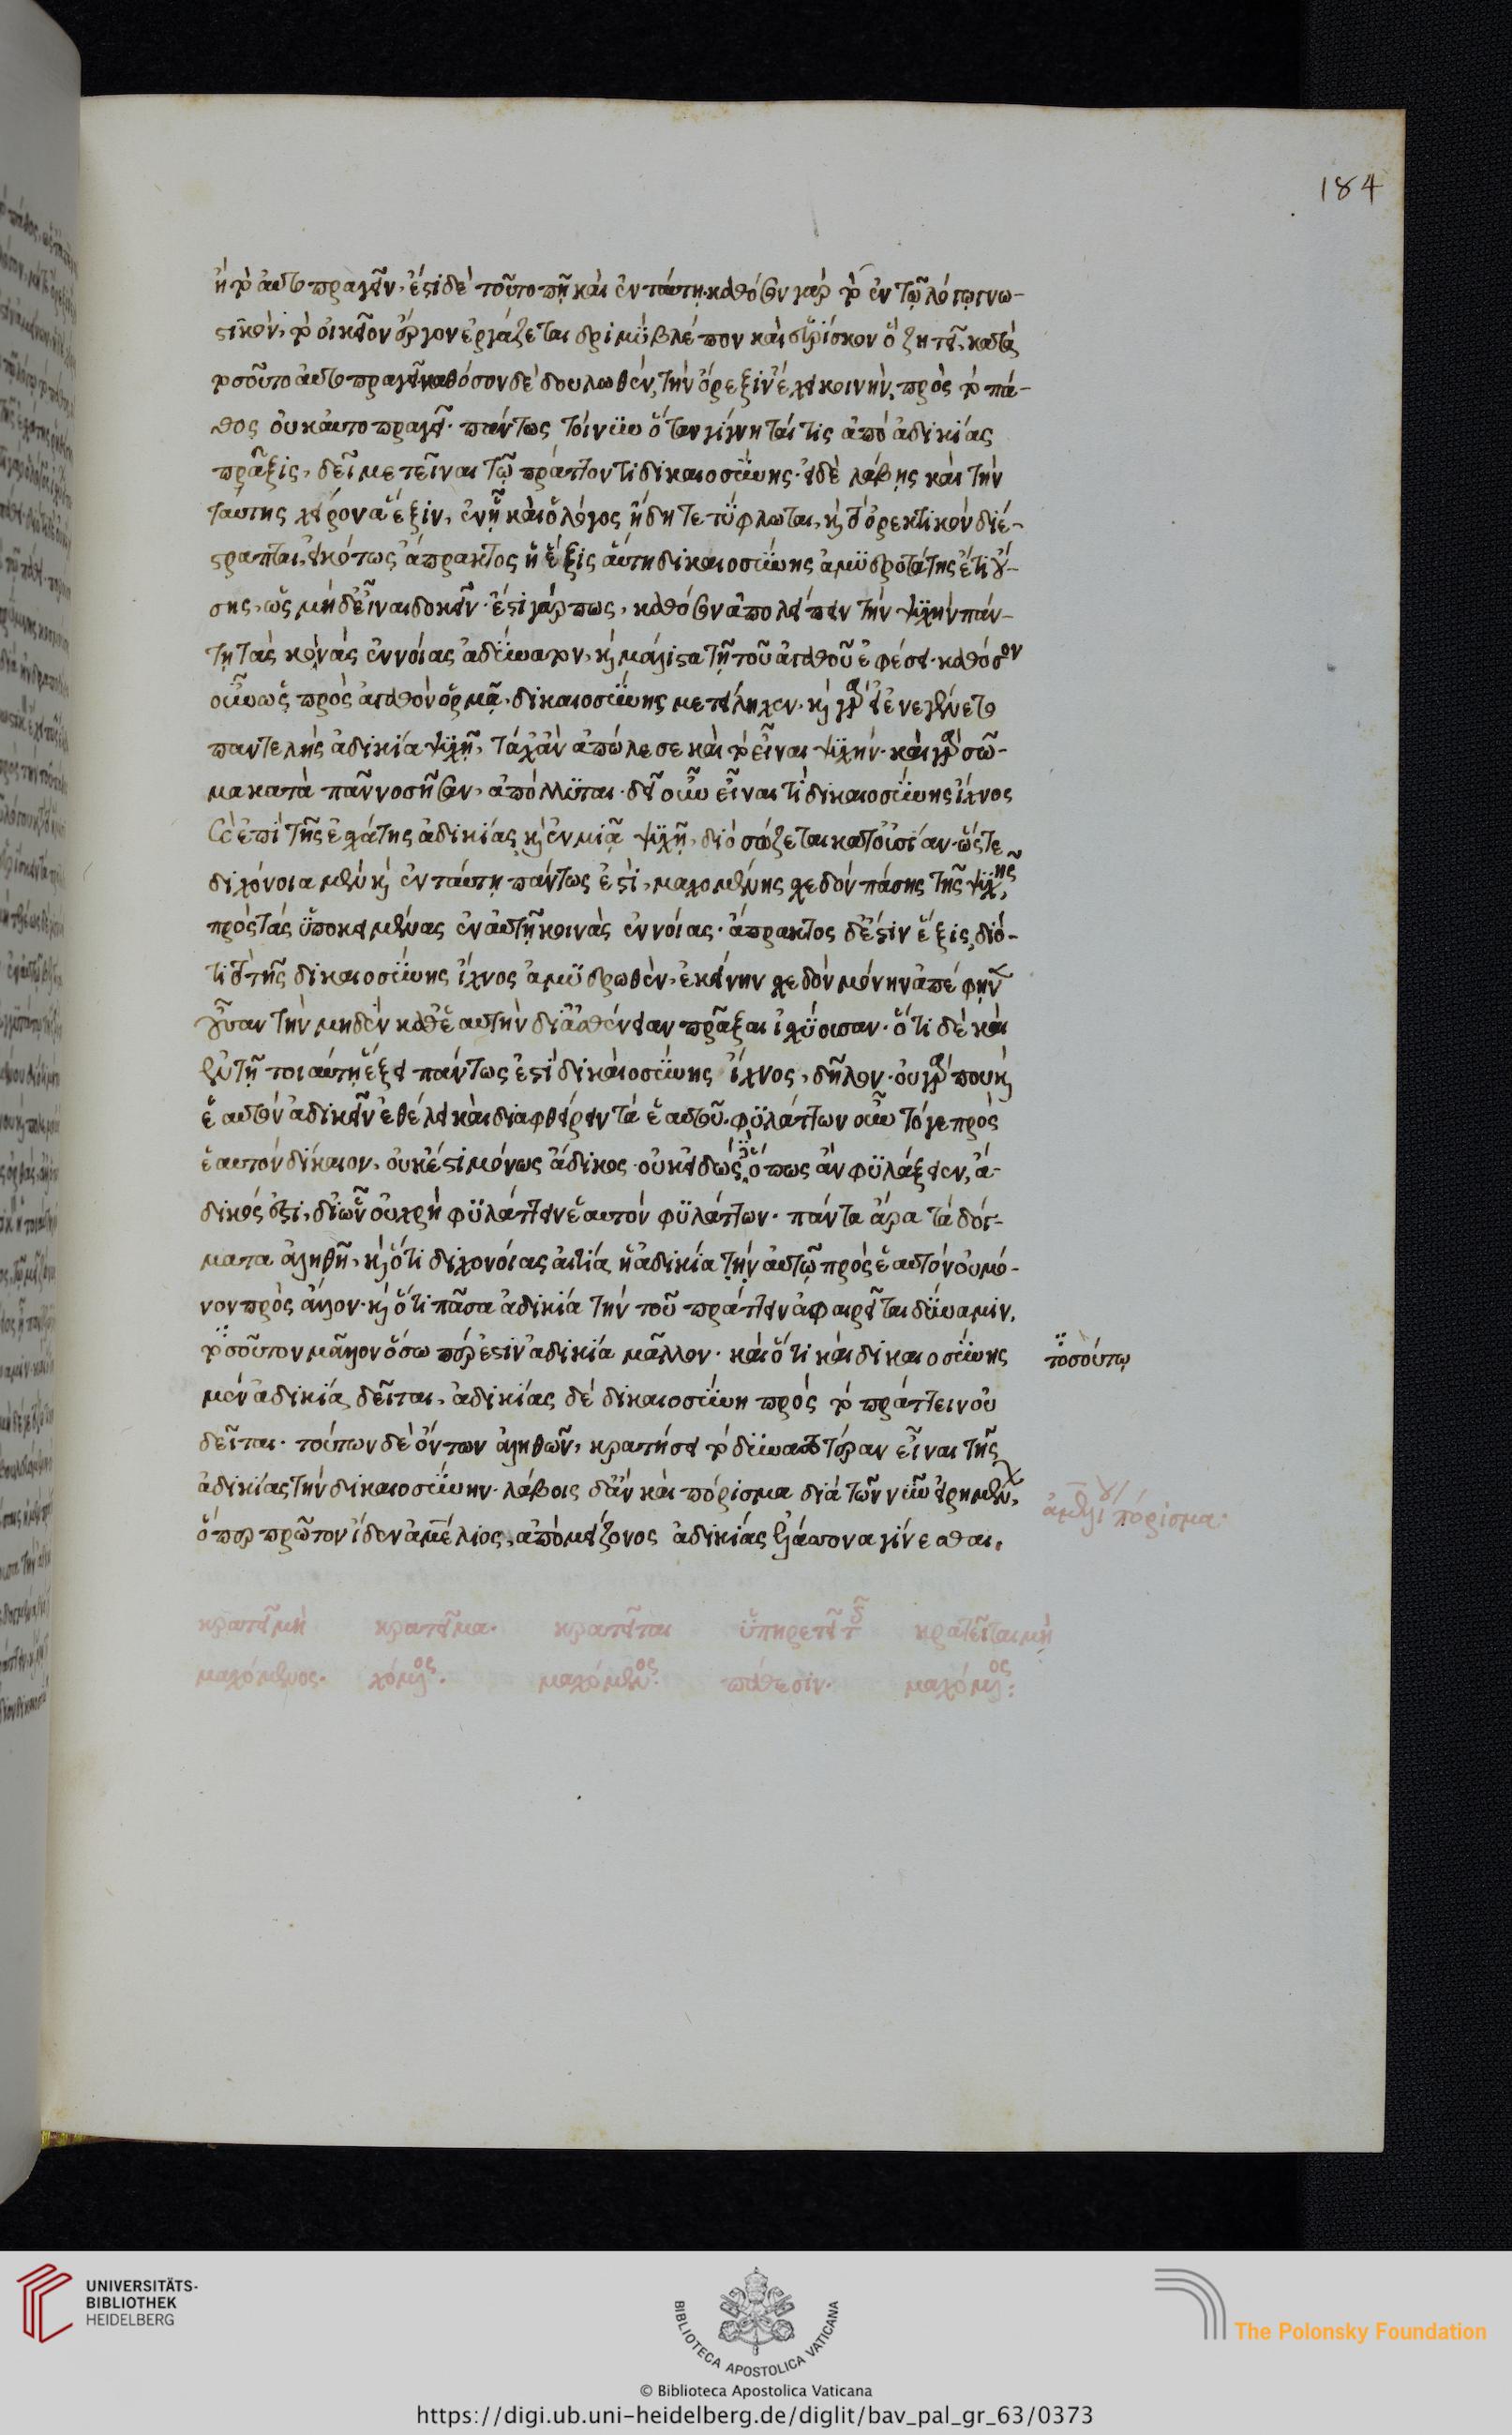 ἢ τὸ αὐτοπραγεῖν. ἔστι δὲ τοῦτο πῆ καὶ ἐν ταύτη. καθόσον γὰρ τὸ ἐν τῷ λόγῳ γνω-
στικὸν, τὸ οἰκεῖον ἔργον ἐργάζεται δριμὺ βλέπον καὶ εὑρίσκον ὃ ζητεῖ. κατὰ
τοσοῦτο αὐτοπραγεῖ. καθόσον δὲ δουλωθὲν, τὴν ὄρεξιν ἕλκει κοινὴν, πρὸς τὸ πά-
θος οὐκ αὐτοπραγεῖ. πάντως τοίνυν ὅταν γίγνηταί τις ἀπὸ ἀδικίας
πρᾶξις, δεῖ μετεῖναι τῷ πράττοντι δικαιοσύνης. εἰ δὲ λάβῃς καὶ τὴν
ταύτης χείρονα ἕξιν, ἐν ᾗ καὶ ὁ λόγος ἤδη τετύφλωται, καὶ τὸ ὀρεκτικὸν διέ-
στραπται, εἰκότως ἄπρακτος ἡ ἕξις αὕτη δικαιοσύνης ἀμυδροτάτης ἔτι οὔ-
σης, ὡς μηδ' εἶναι δοκεῖν. ἔστι γάρ πως, καθόσον ἀπολείπειν τὴν ψυχὴν πάν-
τη τὰς κοινὰς ἐννοίας ἀδύνατον, καὶ μάλιστα τῇ τοῦ ἀγαθοῦ ἐφέσει. καθόσον
οὖν ὡς πρὸς ἀγαθὸν ὁρμᾷ, δικαιοσύνης μετείληχεν. καὶ γὰρ εἰ ἐνεγένετο
παντελὴς ἀδικία ψυχῇ, τάχ' ἂν ἀπώλεσε καὶ τὸ εἶναι ψυχήν. καὶ γὰρ σῶ-
μα κατὰ πᾶν νοσῆσαν, ἀπόλλυται. δεῖ οὖν εἶναι τι δικαιοσύνης ἴχνος
καὶ ἐπὶ τῆς ἐσχάτης ἀδικίας καὶ ἐν μιᾷ ψυχῇ, διὸ σώζεται κατ' οὐσίαν. ὥστε
διχόνοια μὲν καὶ ἐν ταύτῃ πάντως ἐστὶ, μαχομένης σχεδὸν πάσης τῆς ψυχῆς,
πρὸς τὰς ὑποκειμένας ἐν αὐτῇ κοινὰς ἐννοίας. ἄπρακτος δ' ἐστὶν ἕξις, διό-
τι τὸ τῆς δικαιοσύνης ἴχνος ἀμυδρωθὲν, ἐκείνην σχεδὸν μόνην ἀπέφηνεν
οὖσαν τὴν μηδὲν καθ' ἑαυτὴν δι' ἀσθένειαν πρᾶξαι ἰσχύουσαν. ὅτι δὲ καὶ
ἐν τῇ τοιαύτῃ ἕξει πάντως ἐστὶ δικαιοσύνης ἴχνος, δῆλον. οὐ γάρ που καὶ
ἑαυτὸν ἀδικεῖν ἐθέλει καὶ διαφθείρειν τὰ ἑαυτοῦ. φυλάττων οὖν τό γε πρὸς
ἑαυτὸν δίκαιον, οὐκ ἔστι μόνως ἄδικος. οὐκ εἰδὼς δ' ὅπως ἂν φυλάξειεν, ἄ-
δικός ἐστι, δι' ὧν οὐ χρὴ φυλάττειν ἑαυτὸν φυλάττων. πάντα ἄρα τὰ δόγ-
ματα ἀληθῆ, καὶ ὅτι διχονοίας αἰτία ἡ ἀδικία τὴν αὐτῷ πρὸς ἑαυτὸν οὐ μό-
νον πρὸς ἄλλον. καὶ ὅτι πᾶσα ἀδικία τὴν τοῦ πράττειν ἀφαιρεῖται δύναμιν.
τοσοῦτον μᾶλλον ὅσω πέρ ἐστιν ἀδικία μᾶλλον. καὶ ὅτι καὶ δικαιοσύνης
μὲν ἀδικία δεῖται, ἀδικίας δὲ δικαιοσύνη πρὸς τὸ πράττειν οὐ
δεῖται. τούτων δὲ ὄντων ἀληθῶν, κρατήσει τὸ δυνατωτέραν εἶναι τῆς
ἀδικίας τὴν δικαιοσύνην. λάβοις δ' ἂν καὶ πόρισμα διὰ τῶν νῦν εἰρημένων,
ὅπερ πρῶτον εἶδεν ἀμέλιος, ἀπὸ μείζονος ἀδικίας ἐλάττονα γίνεσθαι.
τοσούτῳ
ἀμελίου πόρισμα.
κρατεῖ μὴ κρατεῖ μα. κρατεῖται ὑπηρετεῖ τοῖς κρατεῖται μὴ
μαχόμενος. χόμενος. μαχόμενος. πάθεσιν. μαχόμενος:
184
UNIVERSITÄTS-
BIBLIOTHEK
HEIDELBERG
BIBLIOTECA APOSTOLICA VATICANA
© Biblioteca Apostolica Vaticana
The Polonsky Foundation
https://digi.ub.uni-heidelberg.de/diglit/bav_pal_gr_63/0373